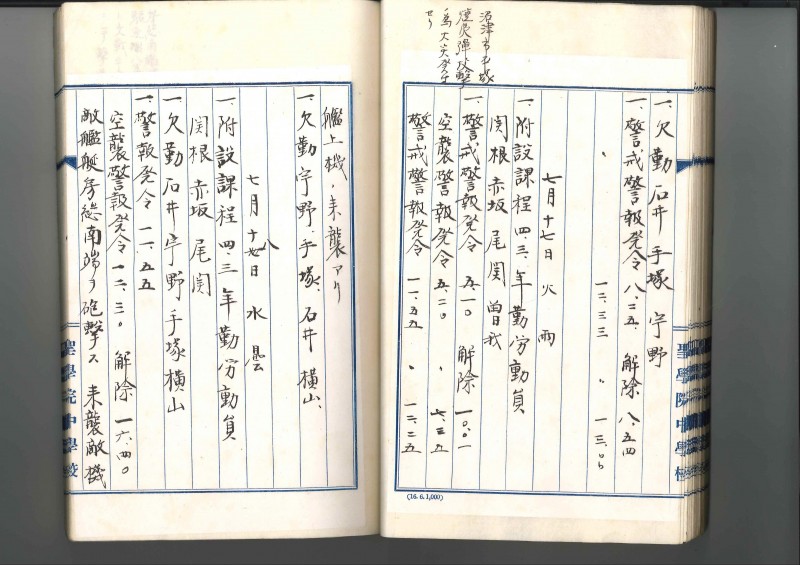 一、欠勤 石井 手塚 宇野
一、警戒警報発令 八、二五、 解除 八、五四
〃 一二、三三 〃 一三、〇五
七月十七日 火 雨
一、附設課程 四、三、年 勤労動員
関根 赤坂 尾関 曽我
一、警戒警報発令 五、一〇 解除 一〇、〇一
空襲警報発令 五、二〇 〃 七、三五
警戒警報発令 一一、五五 〃 一二、二五
沼津市
焼夷弾攻撃
為大災発生
セリ
聖學院中學校
(16.6.1,000)
艦上機ノ来襲アリ
一、欠勤 宇野、手塚、石井 横山、
七月十八日 水 曇
一、附設課程 四、三年 勤労動員
関根 赤坂 尾関
一、欠勤 石井 宇野 手塚 横山
一、警報発令 一一、五五
空襲警報発令 一二、三〇 解除 一六、四〇
敵艦艇房総南端ヲ砲撃ス 来襲敵機
聖學院中學校